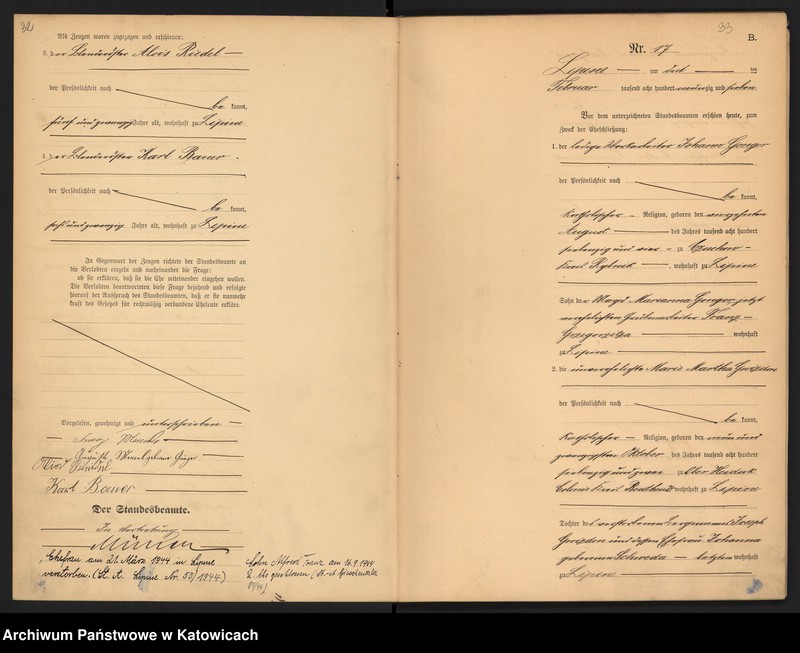 32
Als Zeugen waren zugezogen und erschienen:
3. der Blenderöster Alois Riedel —
der Persönlichkeit nach
be kannt,
fünf und zwanzig Jahre alt, wohnhaft zu Lipine
4. der Blenderöster Karl Bauer.
der Persönlichkeit nach
be kannt,
sechs und zwanzig Jahre alt, wohnhaft zu Lipine
In Gegenwart der Zeugen richtete der Standesbeamte an
die Verlobten einzeln und nacheinander die Frage:
ob sie erklären, daß sie die Ehe miteinander eingehen wollen.
Die Verlobten beantworteten diese Frage bejahend und erfolgte
hierauf der Ausspruch des Standesbeamten, daß er sie nunmehr
kraft des Gesetzes für rechtmäßig verbundene Eheleute erkläre.
Vorgelesen, genehmigt und unterschrieben —
Karl Bauer
Der Standesbeamte.
In Vertretung
Ehefrau am 21. März 1944 in Lipine
verstorben. (St. A. Lipine Nr. 50/1944)
Sohn Alfred Franz am
2. Ehe geschlossen
33
B.
Nr. 17
Lipine — am acht — ten
Februar tausend acht hundert neunzig und sieben
Vor dem unterzeichneten Standesbeamten erschien heute, zum
Zweck der Eheschließung:
1. der Johann Gorger
der Persönlichkeit nach
be kannt,
katholischer — Religion, geboren den
August — des Jahres tausend acht hundert
siebenzig und vier — zu Czuchow —
Kreis Rybnik —, wohnhaft zu Lipine
Sohn der Marianna Gorger, jetzt
verehelichten Franz —
— wohnhaft
zu Lipine —
2. die unverehelichte Marie Martha Gwozdz
der Persönlichkeit nach
be kannt,
katholischer — Religion, geboren den neun und
zwanzigsten Oktober des Jahres tausend acht hundert
siebenzig und zwei zu Ober Heiduk
Kreis Beuthen wohnhaft zu Lipine
Tochter des verstorbenen Bergmanns Joseph
Gwozdz und dessen Ehefrau Johanna
geborenen Schweda — letztere wohnhaft
zu Lipine —
Archiwum Państwowe w Katowicach